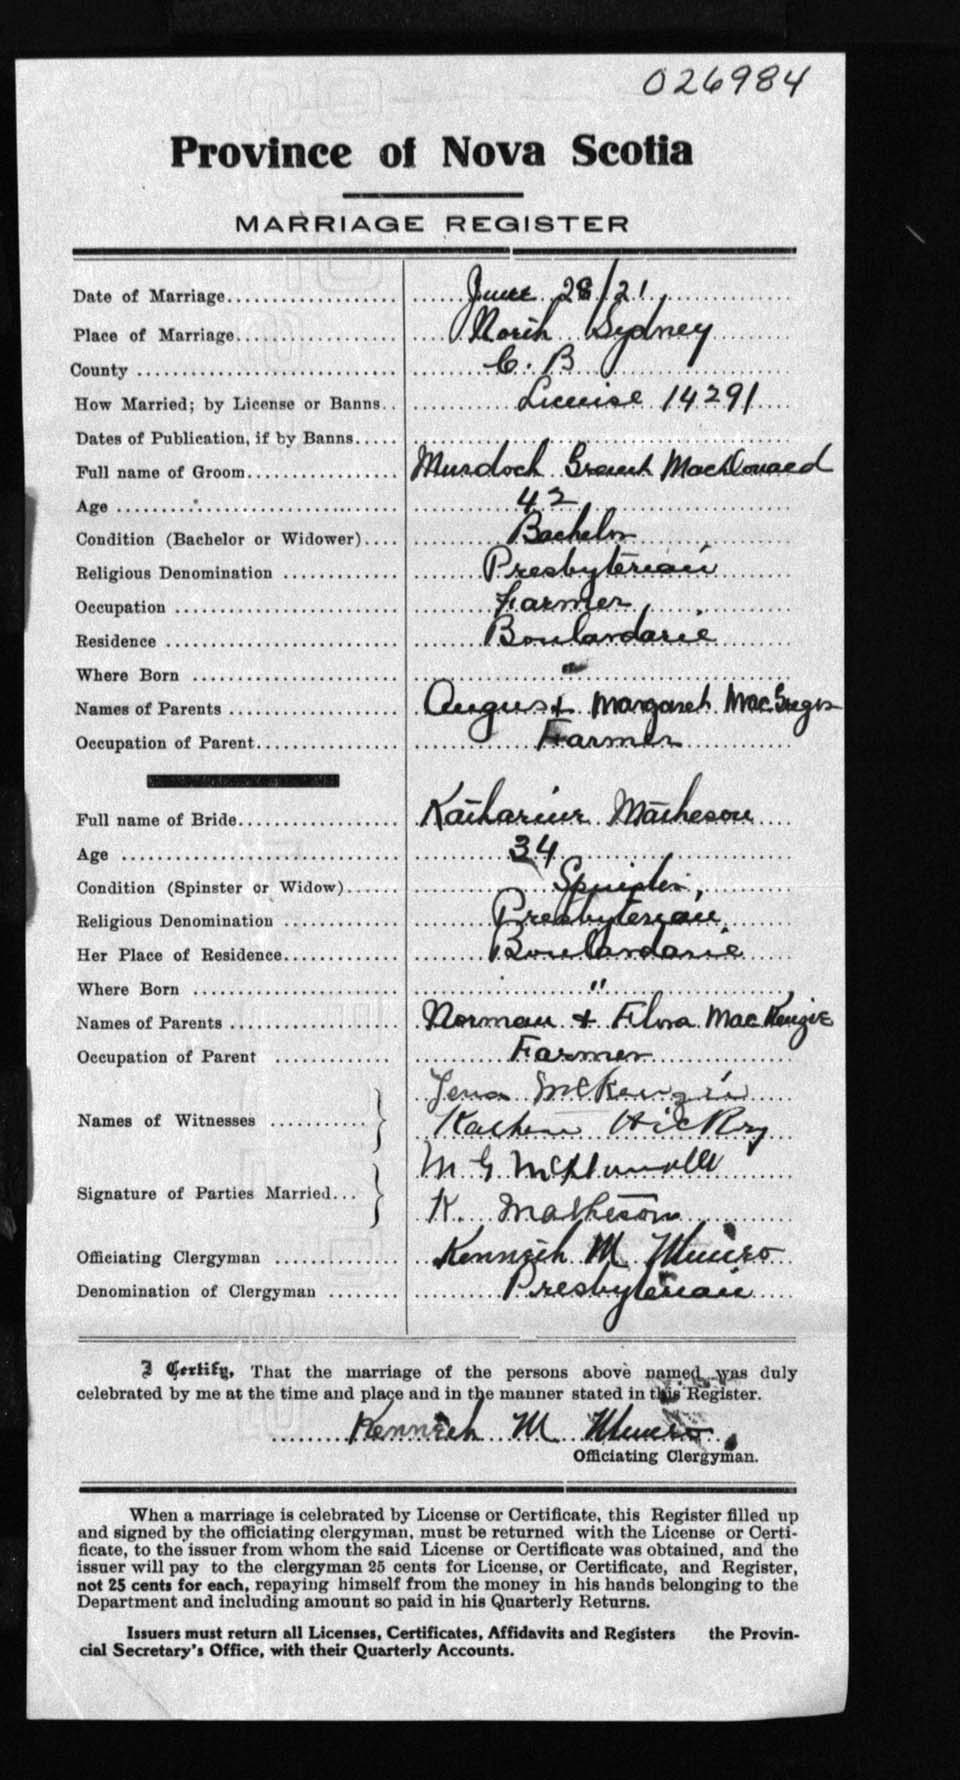 026984
Province of Nova Scotia
MARRIAGE REGISTER
Date of Marriage June 28/21
Place of Marriage North Sydney
County C. B
How Married; by License or Banns License 14291
Dates of Publication, if by Banns
Full name of Groom Murdoch Grant MacDonald
Age 42
Condition (Bachelor or Widower) Bachelor
Religious Denomination Presbyterian
Occupation Farmer
Residence Boulardarie
Where Born "
Names of Parents Angus & Margaret MacGregor
Occupation of Parent Farmer
Full name of Bride Katharine Matheson
Age 34
Condition (Spinster or Widow) Spinster,
Religious Denomination Presbyterian
Her Place of Residence Boulardarie
Where Born "
Names of Parents Norman & Flora MacKenzie
Occupation of Parent Farmer
Names of Witnesses McKenzie
Signature of Parties Married M G McDonald
K. Matheson
Officiating Clergyman Kenneth M Munro
Denomination of Clergyman Presbyterian
I Certify, That the marriage of the persons above named was duly
celebrated by me at the time and place and in the manner stated in this Register.
Kenneth M Munro
Officiating Clergyman.
When a marriage is celebrated by License or Certificate, this Register filled up
and signed by the officiating clergyman, must be returned with the License or Certi-
ficate, to the issuer from whom the said License or Certificate was obtained, and the
issuer will pay to the clergyman 25 cents for License, or Certificate, and Register,
not 25 cents for each, repaying himself from the money in his hands belonging to the
Department and including amount so paid in his Quarterly Returns.
Issuers must return all Licenses, Certificates, Affidavits and Registers the Provin-
cial Secretary's Office, with their Quarterly Accounts.